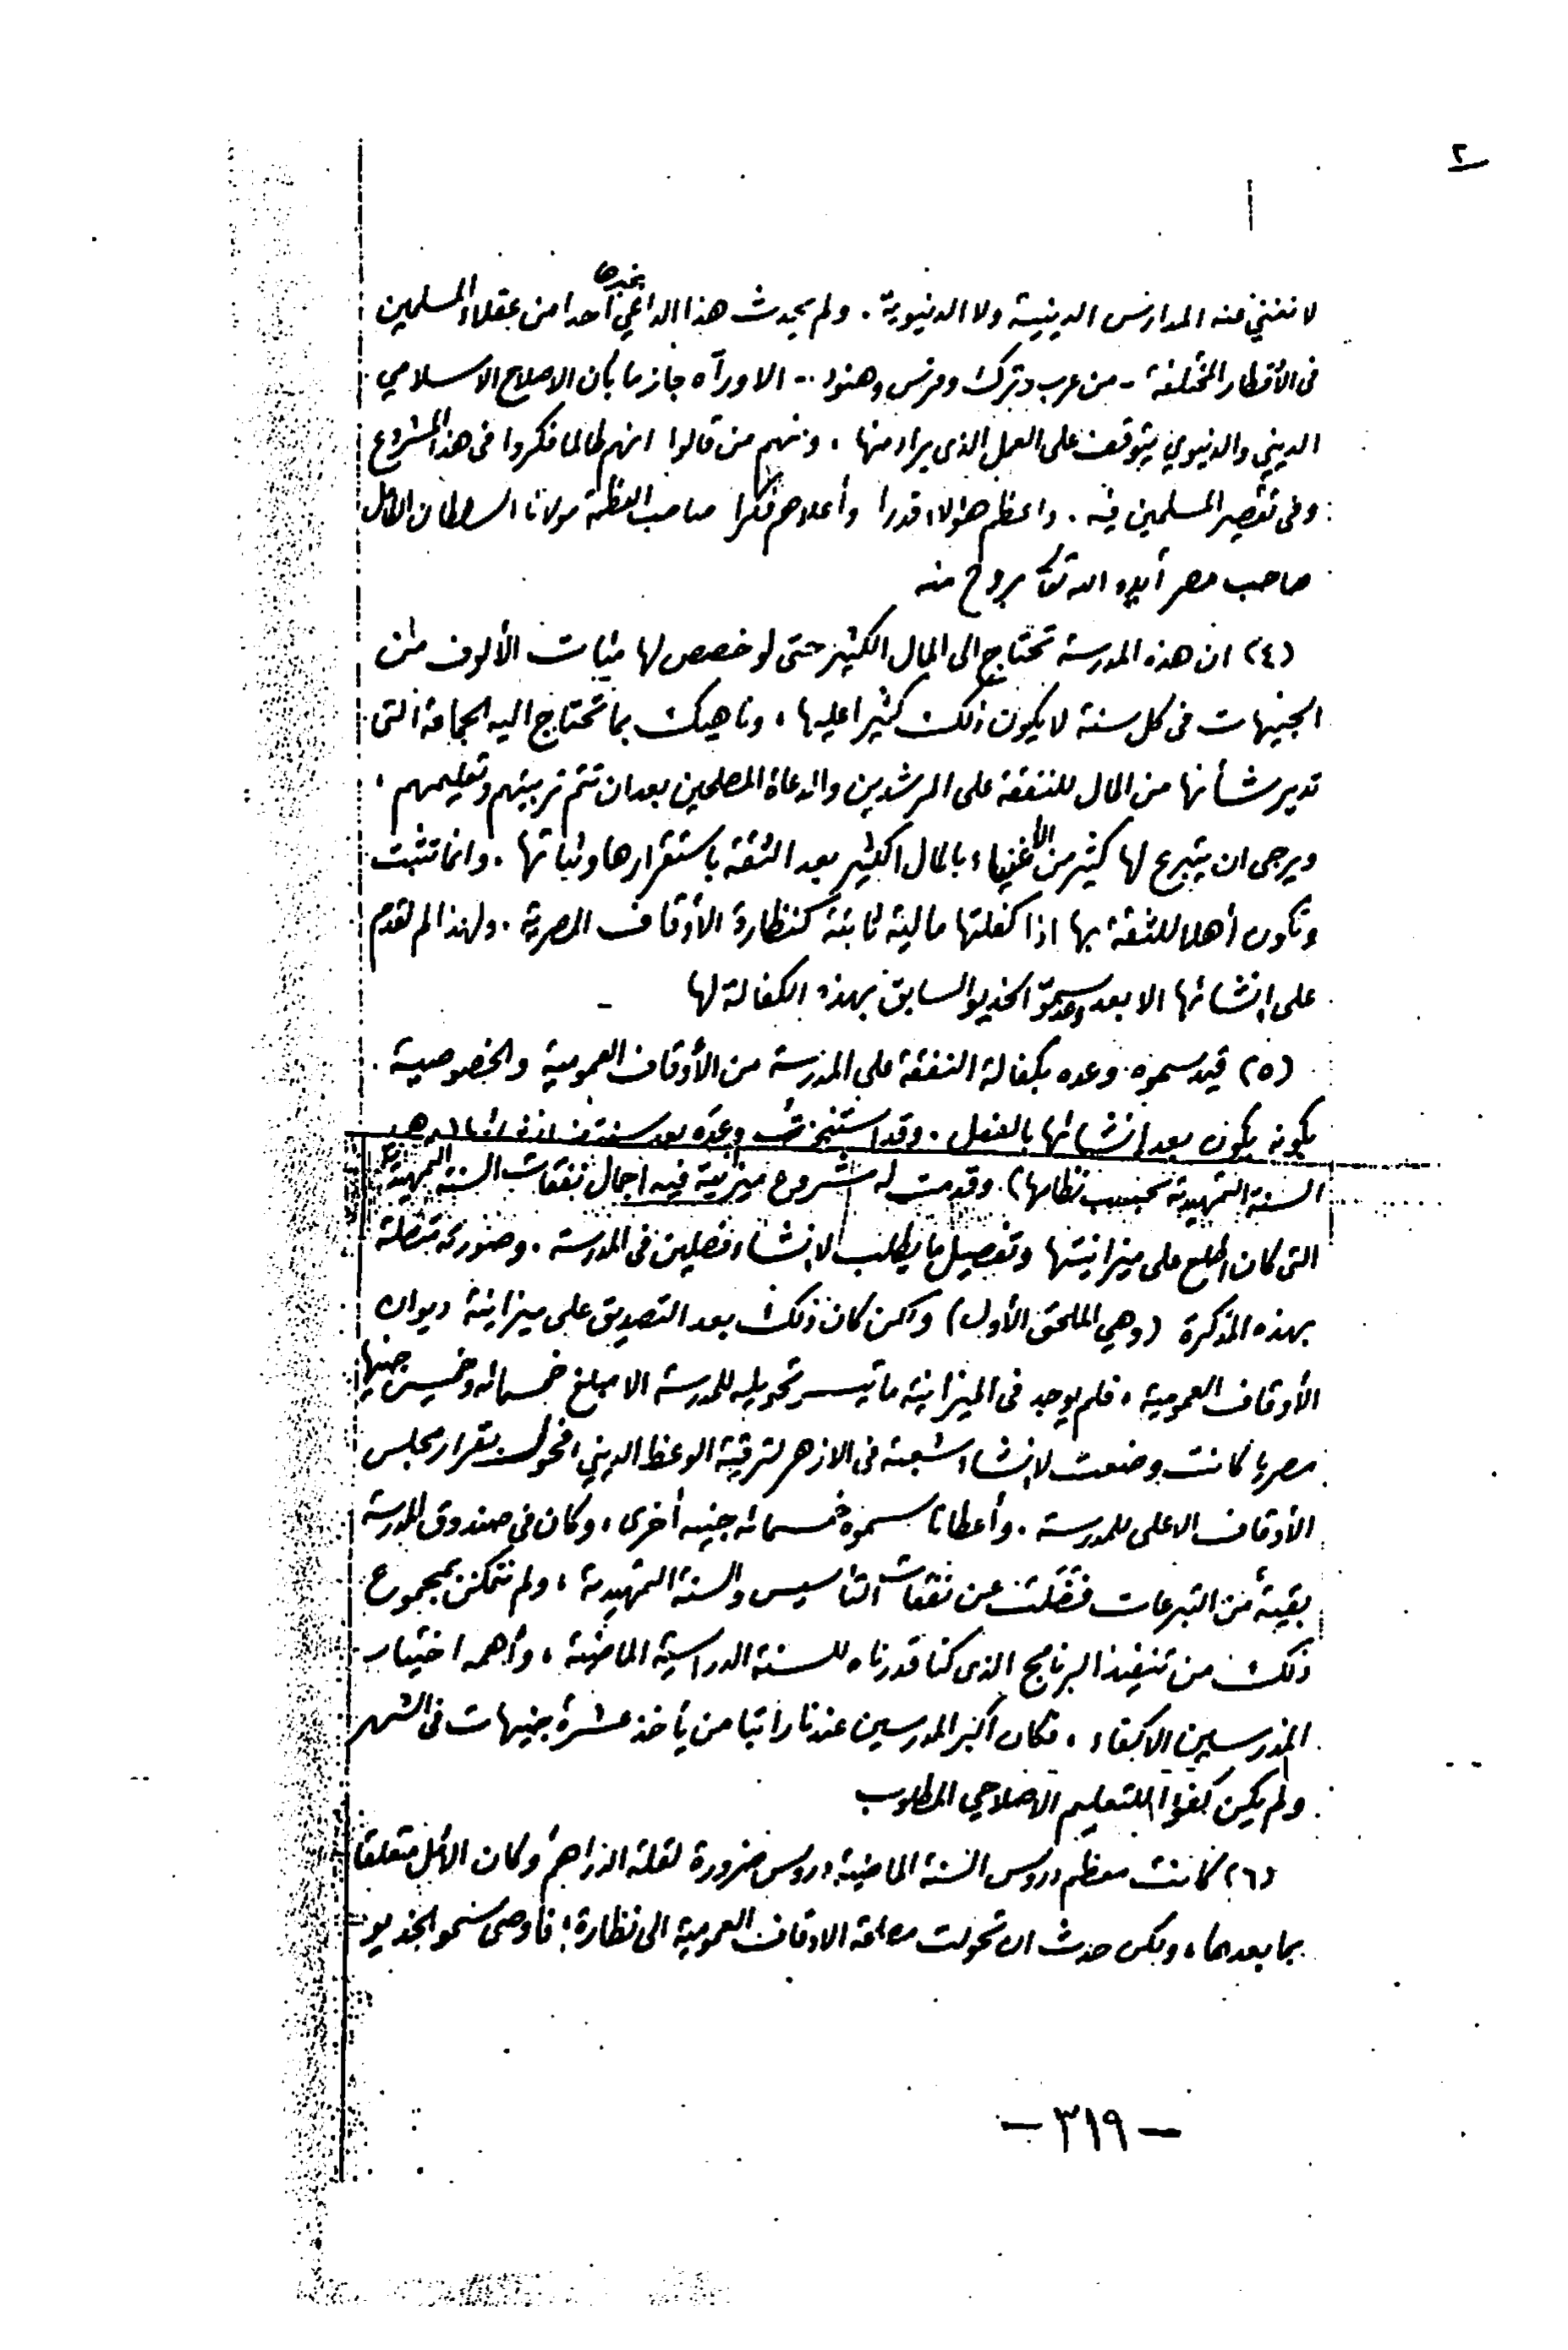 ٢
لا تغني عنه المدارس الدينية ولا الدنيوية . ولم يحدث هذا الداعي بخبرها أحدا من عقلاء المسلمين
فى الأقطار المختلفة - من عرب وترك وفرس وهنود - الا ورآه جازما بأن الاصلاح الاسلامي
الديني والدنيوي يتوقف على العمل الذى يراد منها ، ومنهم من قالوا انهم لطالما فكروا فى هذا المشروع
وفى تقصير المسلمين فيه . واعظم هؤلاء قدرا وأعلاهم فكرا صاحب العظمة مولانا السلطان الكامل
صاحب مصر أيده الله تعالى بروح منه
(٤) ان هذه المدرسة تحتاج الى المال الكثير حتى لو خصص لها مئات الألوف من
الجنيهات فى كل سنة لا يكون ذلك كثيرا عليها ، وناهيك بما تحتاج اليه الجماعة التى
تدير شأنها من المال للنفقة على المرشدين والدعاة المصلحين بعد ان تتم تربيتهم وتعليمهم ،
ويرجى ان يتبرع لها كثير من الأغنياء بالمال الكثير بعد الثقة باستقرارها وثباتها . وانما تثبت
وتكون أهلا للثقة بها اذا كفلتها مالية ثابتة كنظارة الأوقاف المصرية . ولهذا لم نقدم
على انشائها الا بعد وعد سموّ الخديو السابق بهذه الكفالة لها
(٥) قيد سموه وعده بكفالة النفقة على المدرسة من الأوقاف العمومية والخصوصية
بكونه يكون بعد انشائها بالفعل . وقد استنجزت وعده بعد سنة من
السنة التمهيدية بحسب نظامها) وقدمت له مشروع ميزانية فيه اجمال نفقات السنة التمهيدية
التى كان اطلع على ميزانيتها وتفصيل ما يطلب لانشاء فصلين فى المدرسة . وصورته متصلة
بهذه المذكرة (وهي الملحق الأول) ولكن كان ذلك بعد التصديق على ميزانية ديوان
الأوقاف العمومية ، فلم يوجد فى الميزانية ما تيسر تحويله للمدرسة الا مبلغ خمسمائة وخمسين جنيها
مصريا كانت وضعت لانشاء شعبة فى الازهر لترقية الوعظ الديني ، فحولت بقرار مجلس
الأوقاف الاعلى للمدرسة . وأعطانا سموه خمسمائة جنيه أخرى ، وكان فى صندوق المدرسة
بقية من التبرعات فضلت عن نفقات التأسيس والسنة التمهيدية ، ولم نتمكن بمجموع
ذلك من تنفيذ البرنامج الذى كنا قدرناه للسنة الدراسية الماضية ، وأهمه اختيار
المدرسين الاكفاء ، فكان أكبر المدرسين عندنا راتبا من يأخذ عشرة جنيهات فى الشهر
ولم يكن كفؤا للتعليم الاصلاحي المطلوب
(٦) كانت معظم دروس السنة الماضية دروس ضرورة لقلة الدراهم وكان الأمل متعلقا
بما بعدها ، ولكن حدث ان تحولت مصلحة الاوقاف العمومية الى نظارة ؛ فأوصى سمو الخديو
- ٣١٩ -